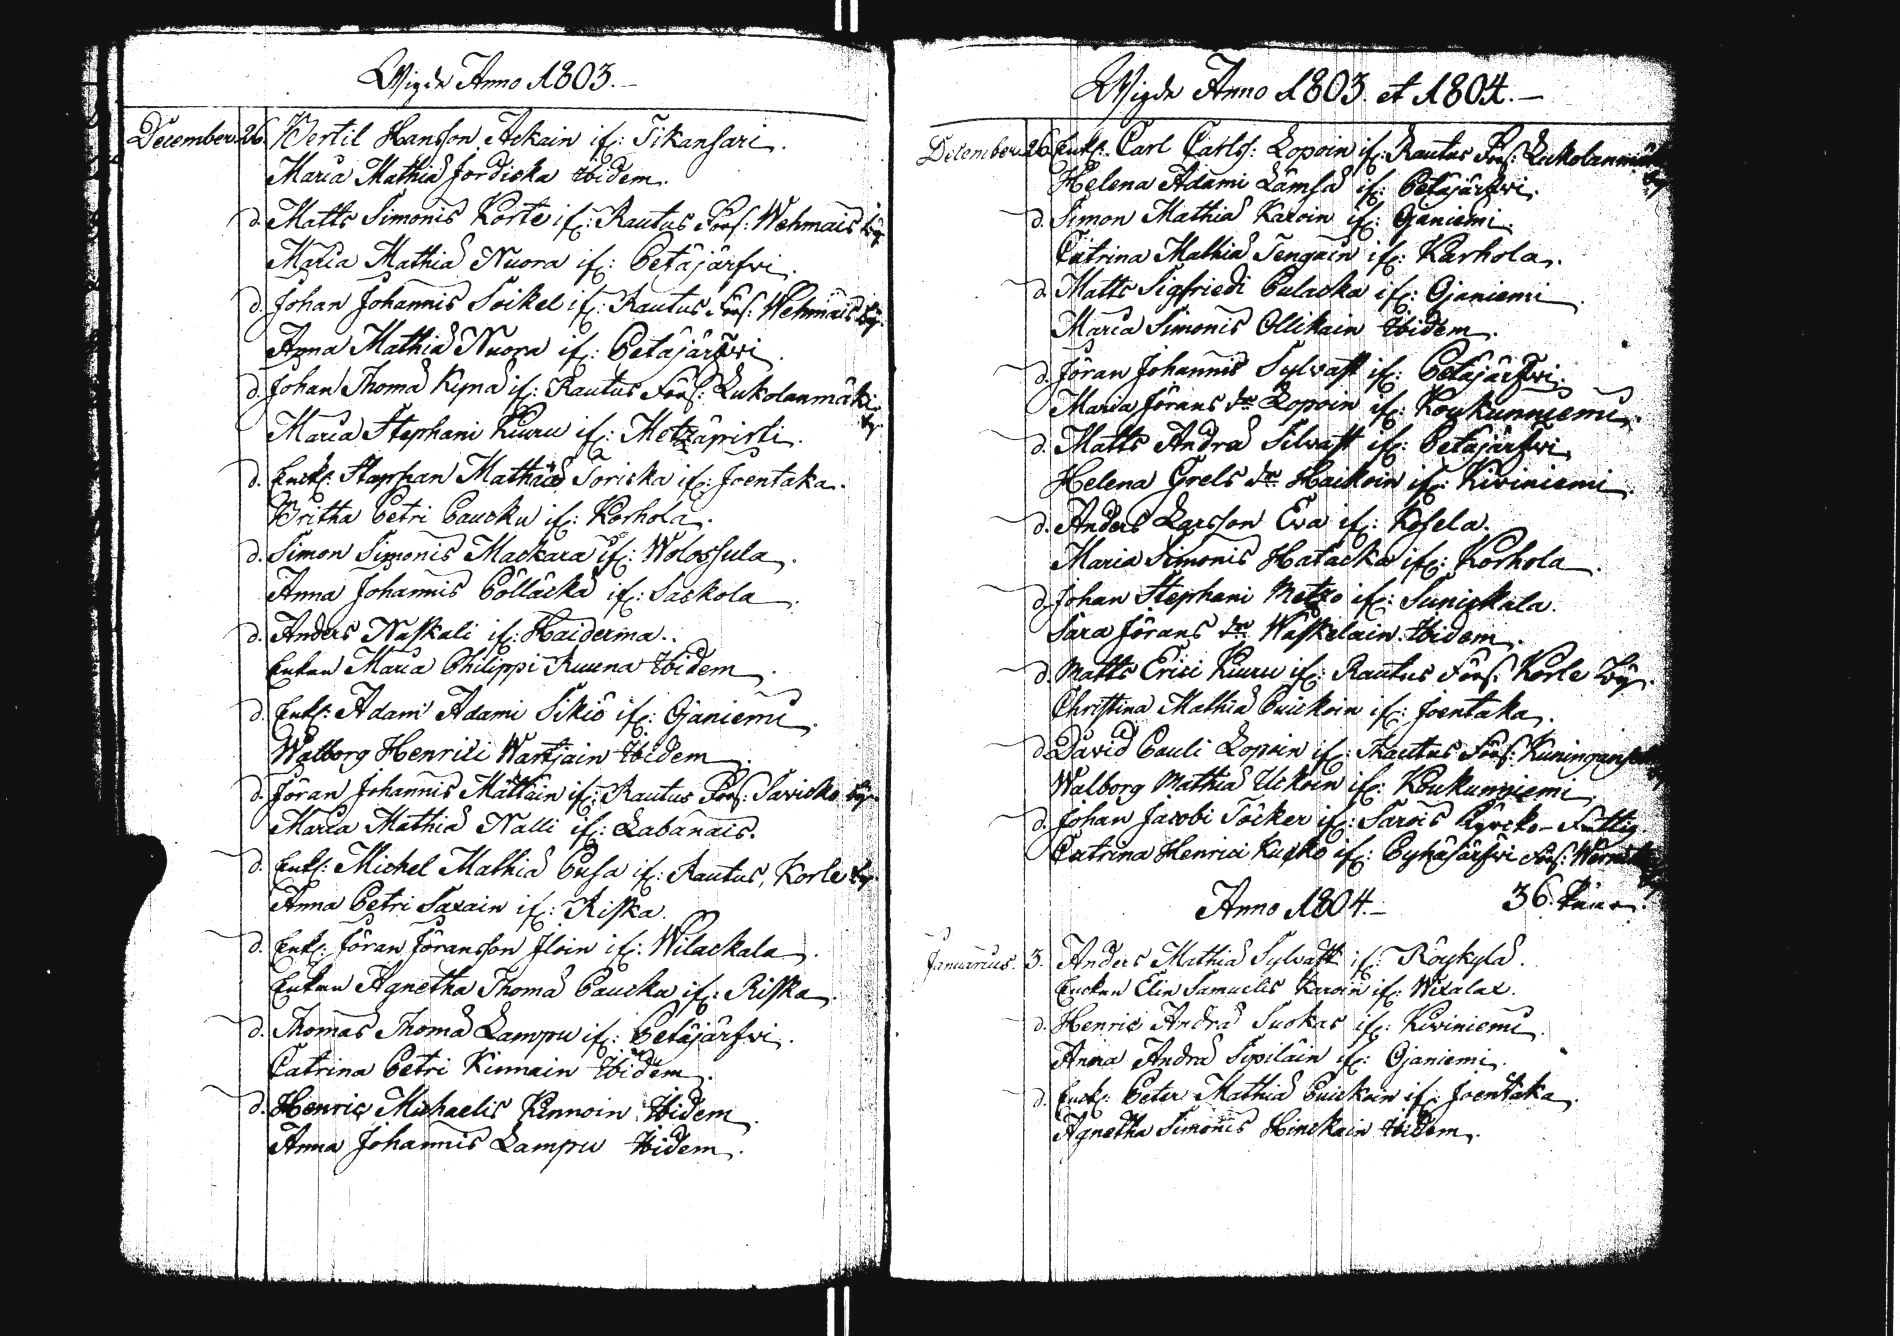 Wigde Anno 1803.
December. 26. Bertil Hansson Ackain if: Tikansari.
Maria Mathiæ Jordicka Ibidem.
d. Matts Simonis Korte if: Rautus Förs: Wehmais by
Maria Mathiæ Nuora if: Petäjärfwi.
d. Johan Johannis Soikel if: Rautus Förs: Wehmais by.
Anna Mathiæ Nuora if: Petäjärfwi.
d. Johan Thomæ Kynä if: Rautus Förs: Lukolanmäki by
Maria Stephani Kiuru if: Metzäpirti.
d. Enkl: Staphan Mathiæ Toricka if: Joentaka.
Britha Petri Paucku if: Korhola.
d. Simon Simonis Mackara if: Wolossula.
Anna Johannis Pölläckä if: Sackola.
d. Anders Naskali if: Haiderma.
Enkan Maria Philippi Ruuna Ibidem.
d. Enkl: Adam Adami Sikiö if: Ojaniemi.
Walborg Henrici Wartjain Ibidem.
d. Jöran Johannis Mättäin if: Rautus Förs: Savicko by.
Maria Mathiæ Nalli if: Labanais.
d. Enkl: Michel Mathiæ Pusa if: Rautus, Korle by
Anna Petri Saxain if: Riska.
d. Enkl: Jöran Jöransson Iloin if: Wilackala.
Enkan Agnetha Thomæ Paucku if: Riska.
d. Thomas Thomæ Lampu if: Petäjärfwi.
Catrina Petri Kinnain Ibidem.
d. Henric Michaelis Kinnoin Ibidem.
Anna Johannis Lampu Ibidem.
Wigde Anno 1803. et 1804.
December. 26. Enkl: Carl Carls: Lopoin if: Rautus Förs: Lukolanmäki by
Helena Adami Lämsä if: Petäjärfwi.
d. Simon Mathiæ Karoin if: Ojaniemi.
Catrina Mathiæ Tengäin if: Karhola.
d. Matts Sigfriedi Pulacka if: Ojaniemi.
Maria Simonis Ollikain Ibidem.
d. Jöran Johannis Sylvast if: Petäjärfwi.
Maria Jörans dr Lopoin if: Koukunniemi.
d. Matts Andræ Silvast if: Petäjärfwi.
Helena Grels dr Haikoin if: Kiviniemi.
d. Anders Larsson Eva if: Kosela.
Maria Simonis Hatacka if: Korhola.
d. Johan Stephani Metzo if: Sunickala.
Sara Jörans dr Wäskelain Ibidem.
d. Matts Erici Kiuru if: Rautus Förs: Korle by.
Christina Mathiæ Puickoin if: Joentaka.
d. David Pauli Lopoin if: Rautus Förs:
Walborg Mathiæ Uckoin if: Koukunniemi.
d. Johan Jacobi Töcker if: Sarois Kyrcko-Fattig.
Catrina Henrici Kucko if: Pyhäjärfwi Förs:
Anno 1804. 36. Paar.
Januarius. 3. Anders Mathiæ Sylvast if: Röykylä.
Enckan Elin Samuelis Karoin if: Wixalax.
d. Henric Andræ Suokas if: Kiviniemi.
Anna Andræ Sipiläin if: Ojaniemi.
d. Enkl: Peter Mathiæ Puickoin if: Joentaka.
Agnetha Simonis Hinckain Ibidem.